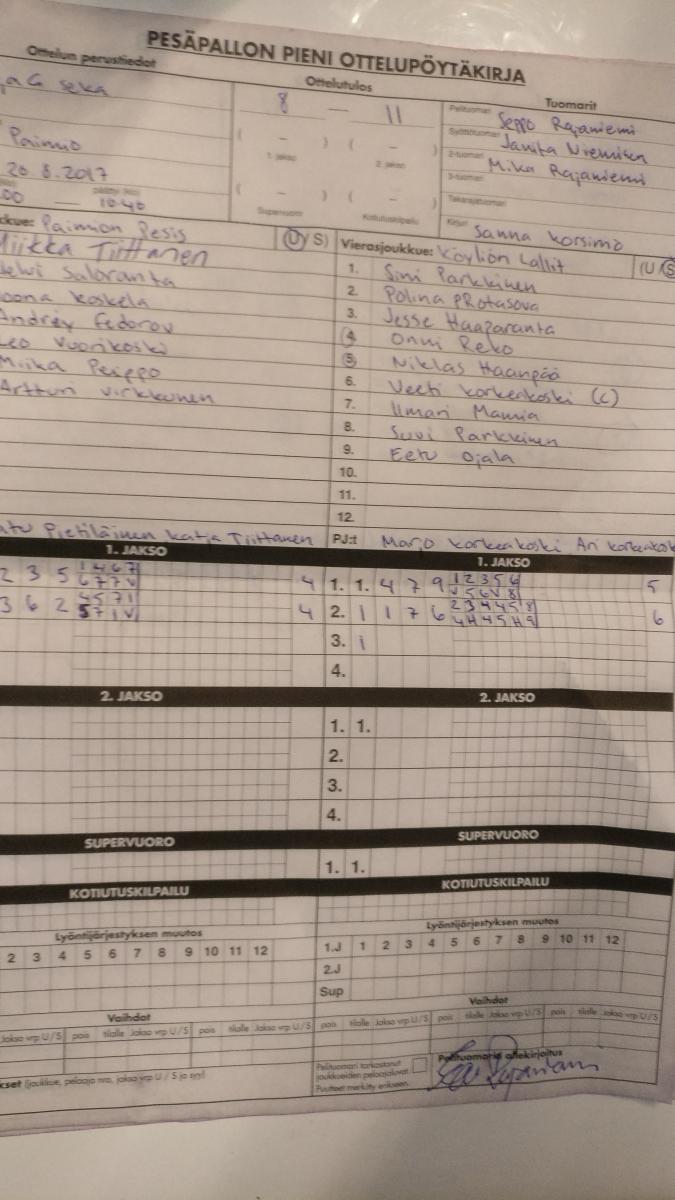 PESÄPALLON PIENI OTTELUPÖYTÄKIRJA
Ottelun perustiedot
Ottelutulos
Tuomarit
G seka
8 — 11
Pelituomari Seppo Rajaniemi
Syöttötuomari Janita Nieminen
2-tuomari Mika Rajaniemi
3-tuomari
Takarajatuomari
Kirjuri Sanna Korsimo
Paimio
20.8.2017
00 — 10.40
( – ) ( – )
1. jakso 2. jakso
( – ) ( – )
Supervuoro Kotiutuskilpailu
kkue: Paimion Pesis (U/S)
Vierasjoukkue: Köyliön Lallit (U/S
Miikka Tiittanen
Saloranta
oona Koskela
Andrey Fedorov
Leo Vuorikoski
Miika Peippo
Artturi Virkkunen
1. Sini Parkkinen
2. Polina Protasova
3. Jesse Haaparanta
4. Onni Reko
5. Niklas Haanpää
6. Veeti Korkeakoski (c)
7. Ilmari Mamia
8. Suvi Parkkinen
9. Eetu Ojala
10.
11.
12.
atu Pietiläinen Katja Tiittanen
PJ:t Marjo Korkeakoski Ari Korkeakosk
1. JAKSO 1. JAKSO
2 3 5 1 4 6 7 4 1. 1. 4 7 9 1 2 3 5 6 5
6 7 7 V V 5 6 V 8
3 6 2 4 5 7 1 4 2. 1 1 7 6 2 3 4 4 5 8 6
5 7 1 V 4 H 4 5 H 9
3. 1
4.
2. JAKSO 2. JAKSO
1. 1.
2.
3.
4.
SUPERVUORO SUPERVUORO
1. 1.
KOTIUTUSKILPAILU KOTIUTUSKILPAILU
Lyöntijärjestyksen muutos Lyöntijärjestyksen muutos
2 3 4 5 6 7 8 9 10 11 12 1.J 1 2 3 4 5 6 7 8 9 10 11 12
2.J
Sup
Vaihdot Vaihdot
Jakso vrp U/S pois tilalle Jakso vrp U/S pois tilalle Jakso vrp U/S pois tilalle Jakso vrp U/S pois tilalle Jakso vrp U/S pois tilalle Jakso vrp U/S
kset (joukkue, pelaaja nro, jakso vrp U / S ja syy)
Pelituomari tarkastanut
joukkueiden pelaajaluvat.
Puutteet merkitty erikseen.
Pelituomarin allekirjoitus